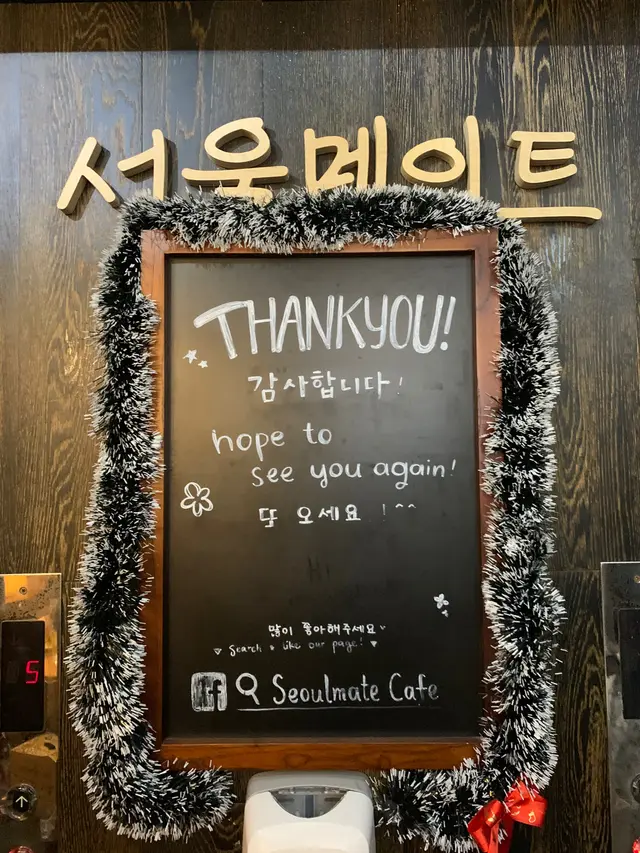 서울메이트
THANKYOU!
감사합니다!
hope to
see you again!
또 오세요 ! ^^
많이 좋아해주세요
Search & like our page!
f Seoulmate Cafe
5